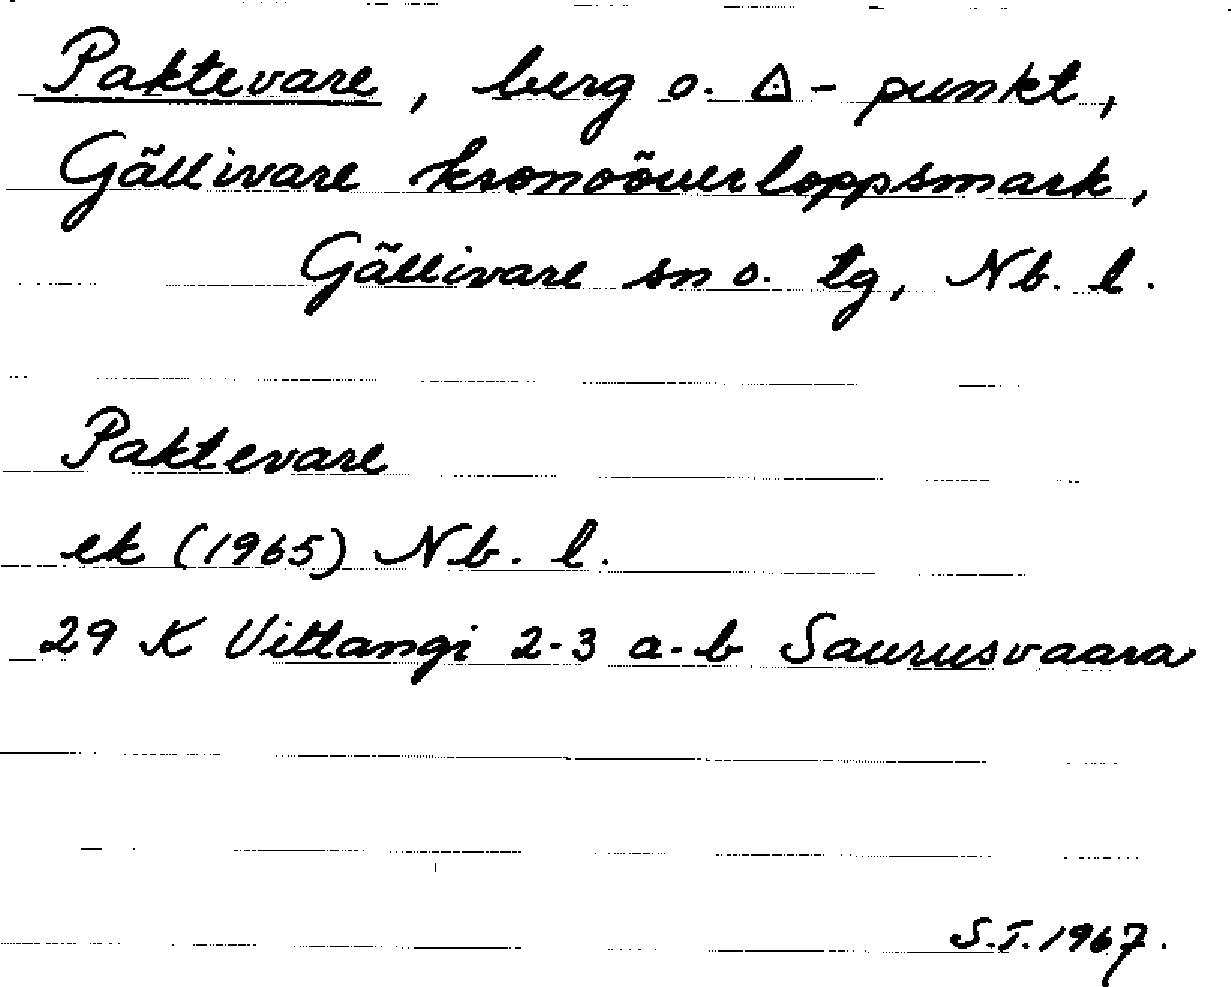 Paktevare, berg o. △-punkt,
Gällivare kronoöverloppsmark,
Gällivare sn o. tg, Nb. l.
Paktevare
ek (1965) Nb. l.
29 K Vittangi 2-3 a-b Saurusvaara
S.T. 1967.